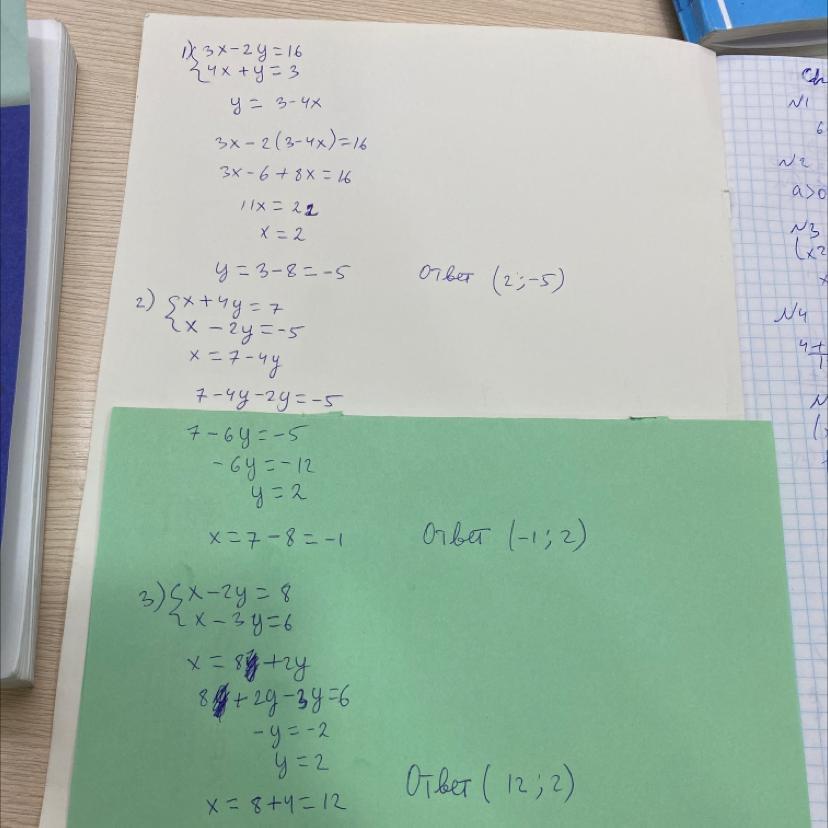 1) { 3x-2y=16
4x+y=3
y = 3-4x
3x-2(3-4x)=16
3x-6+8x=16
11x=22
x=2
y=3-8=-5 Ответ (2;-5)
2) { x+4y=7
x-2y=-5
x=7-4y
7-4y-2y=-5
7-6y=-5
-6y=-12
y=2
x=7-8=-1 Ответ (-1;2)
3) { x-2y=8
x-3y=6
x=8+2y
8+2y-3y=6
-y=-2
y=2
x=8+4=12 Ответ (12;2)
N1
6
N2
a>0
N3
(x2
x
N4